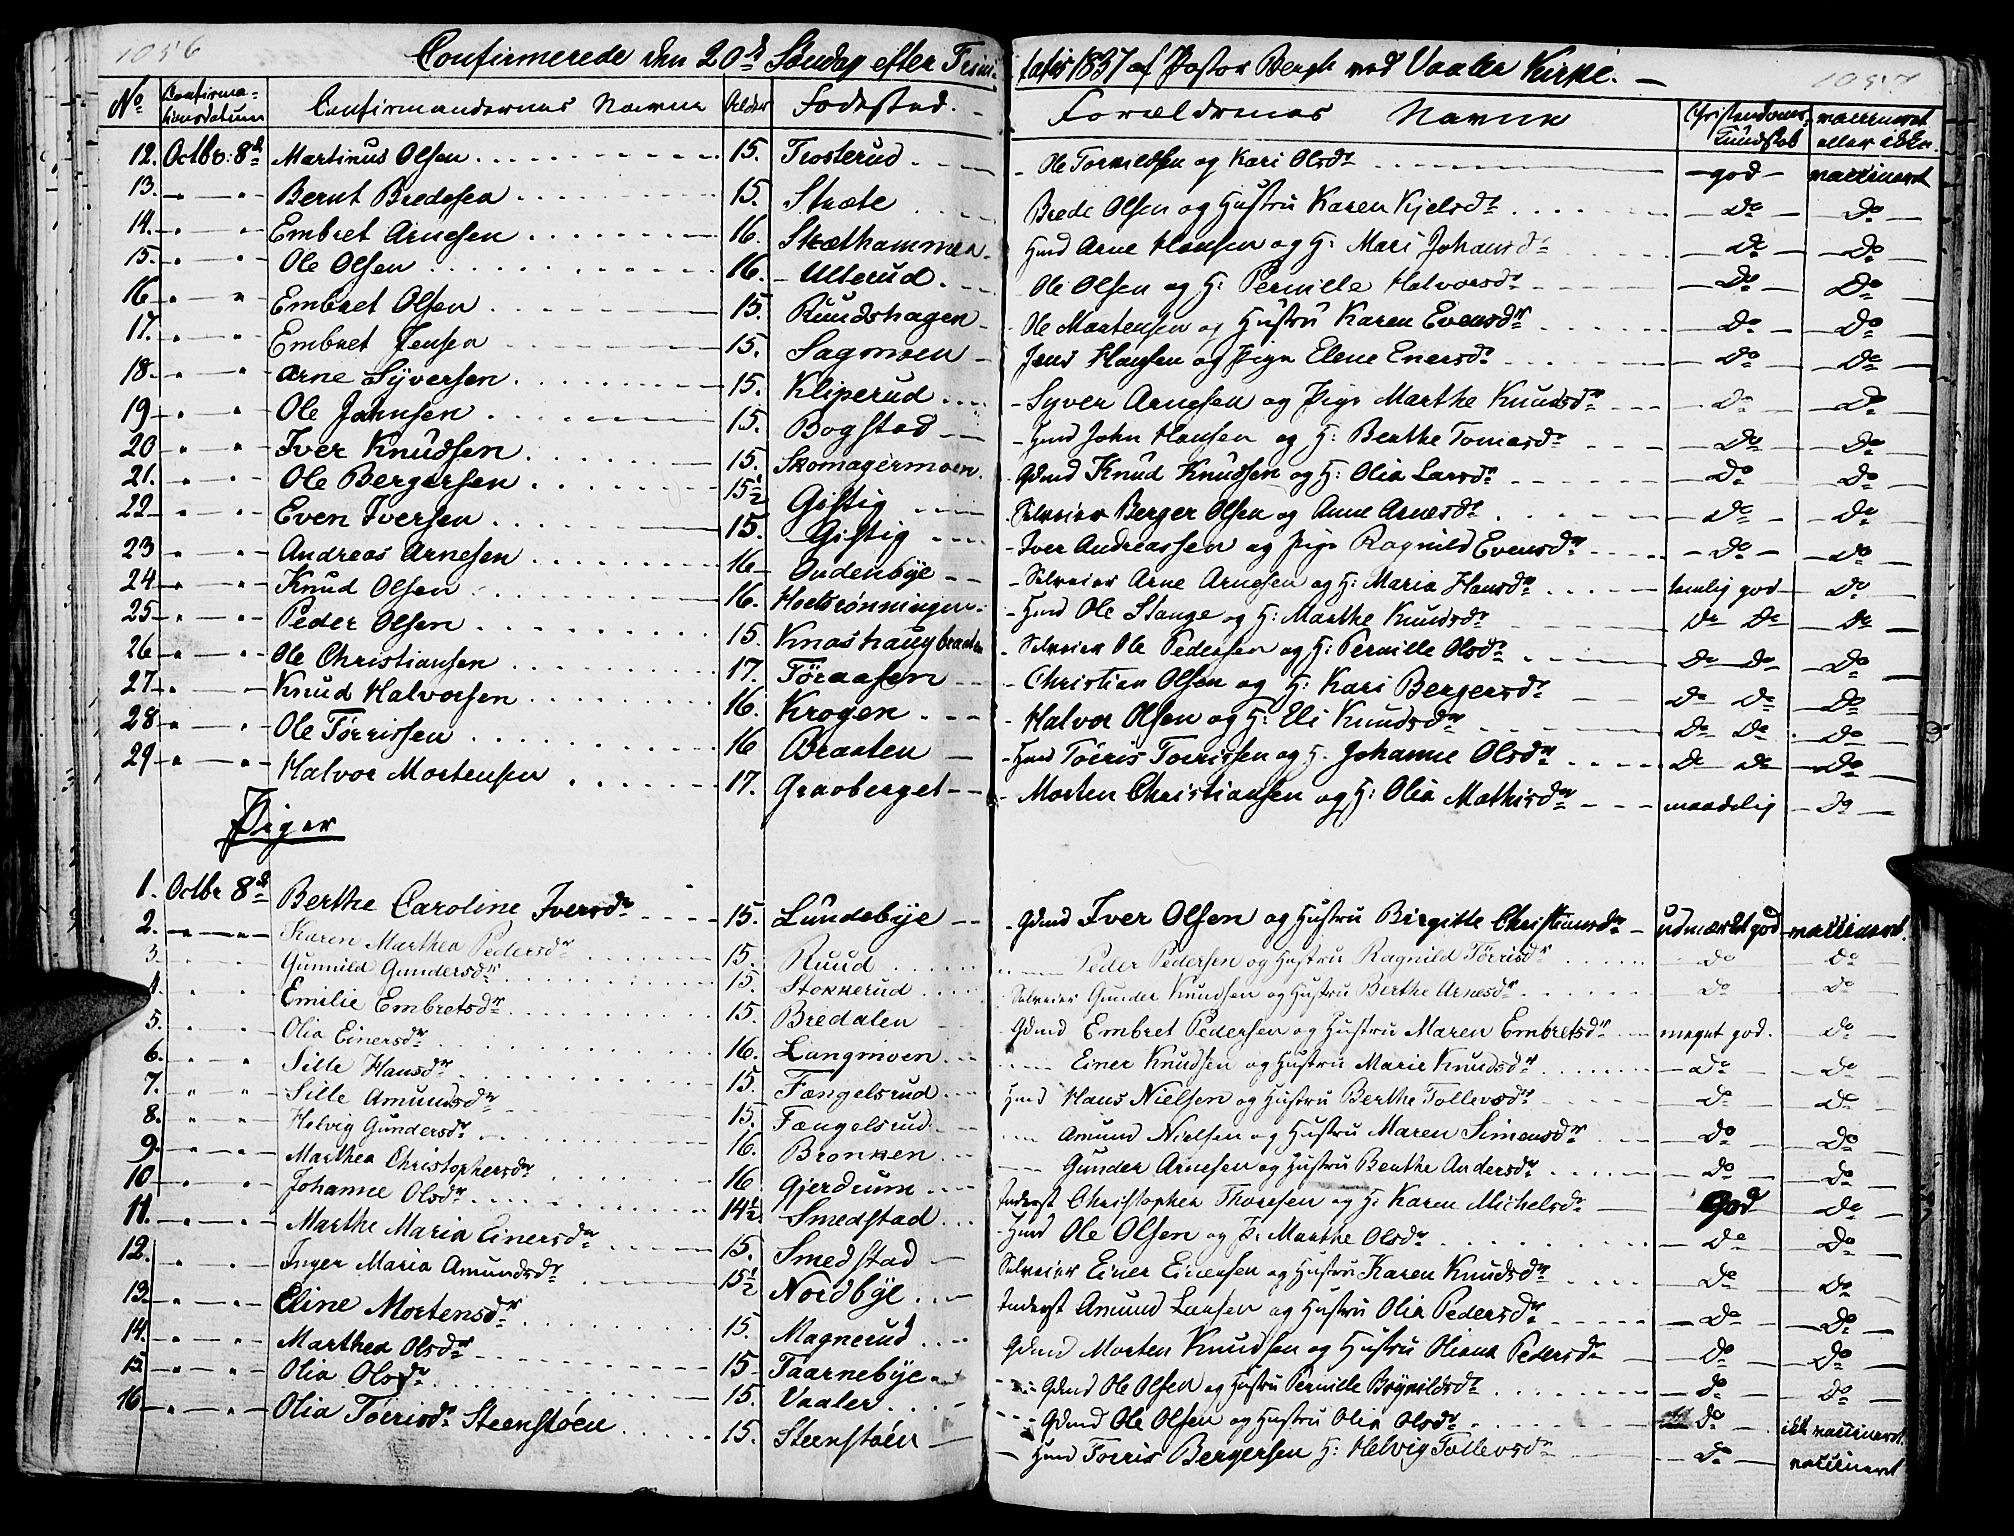 1056
Confirmerede den 20de Søndag efter Trini- tatis 1837 af Pastor Bergh ved Vaaler Kirke. —
1057
No Confirma-tionsdatum Confirmandernes Navne Alder Fødested. Forældrenes Navne Christendoms-Kundskab vaccineret eller ikke.
12. Octbr: 8de Martinus Olsen 15. Trosterud Ole Torkildsen og Kari Olsdr god vaccineret
13. " — " Bernt Bredesen 15. Skræte Brede Olsen og Hustru Karen Kjelsdr Do Do
14. " — " Embret Arnesen 16. Skræthammeren Hmd Arne Hansen og H: Mari Johansdr Do Do
15. " — " Ole Olsen 16. Ulterud Ole Olsen og H: Pernille Halvorsdr Do Do
16 " — " Embret Olsen 15. Ruudshagen Ole Mortensen og Hustru Karen Evensdr Do Do
17. " — " Embret Jensen 15. Sagmoen Jens Hansen og Pige Elene Enersdr Do Do
18. " — " Arne Syversen 15. Kliperud Syver Arnesen og Pige Marthe Knudsdr Do Do
19 " — " Ole Johnsen 15. Bogstad Hmd John Hansen og H: Berthe Tomasdr Do Do
20 " — " Iver Knudsen 15. Skomagermoen Gdmd Knud Knudsen og H: Olia Larsdr Do Do
21. " — " Ole Bergersen 15½ Giftig Selveier Berger Olsen og Anne Arnesdr Do Do
22 " — " Even Iversen 15. Giftig Iver Andreassen og Pige Ragnild Evensdr Do Do
23 " — " Andreas Arnesen 16 Oudenbye Selveier Arne Arnesen og H: Maria Hansdr temlig god Do
24 " — " Knud Olsen 16. Holtrønningen Hmd Ole Stange og H: Marthe Knudsdr Do Do Do
25 " — " Peder Olsen 15. Knashaugbraaten Selveier Ole Pedersen og H: Pernille Olsdr Do Do Do
26 " — " Ole Christiansen 17. Tøraasen Christian Olsen og H: Kari Bergersdr Do Do Do
27 " — " Knud Halvorsen 16. Krogen Halvor Olsen og H: Eli Knudsdr Do Do Do
28 " — " Ole Tørrissen 16 Braaten Hmd Töeris Toerissen og H. Johanne Olsdr Do Do Do
29 " — " Halvor Mortensen 17. Graaberget Morten Christiansen og H: Olia Mathisdr maadelig Do
Piger
1. Octbr 8de Berthe Caroline Iversdr 15. Lundebye Gdmd Iver Olsen og Hustru Birgitte Christiansdr udmærket god vaccineret.
2. " — " Karen Marthea Pedersdr 15. Ruud Peder Pedersen og Hustru Ragnild Törrisdr Do Do
3. " " Gunnild Gundersdr 15. Stokkerud Selveier Gunder Knudsen og Hustru Berthe Arnesdr Do Do
4. " " Emilie Embretsdr 15. Bredalen Gdmd Embret Pedersen og Hustru Maren Embretsdr meget god. Do
5. " " Olia Einersdr 16. Langmoen Einer Knudsen og Hustru Marie Knudsdr Do Do
6. " " Sille Hansdr 15. Fængelsrud Hmd Hans Nielsen og Hustru Berthe Tollevsdr Do Do
7. " " Sille Amundsdr 15. Fængelsrud Amund Nielsen og Hustru Maren Simensdr Do Do
8. " " Helvig Gundersdr 16. Bronken Gunder Arnesen og Hustru Berthe Andersdr Do Do
9. " " Marthea Christophersdr 16 Gjerdrum Inderst Christopher Thoresen og H: Karen Michelsdr God Do
10 " " Johanne Olsdr 14½ Smedstad Hmd Ole Olsen og H: Marthe Olsdr Do Do
11. " — " Marthe Maria Einersdr 15. Smedstad Selveier Einer Einersen og Hustru Karen Knudsdr Do Do
12. " — " Inger Maria Amundsdr 15½ Nordbye Inderst Amund Larsen og Hustru Olia Pedersdr Do Do
13. " — " Eline Mortensdr 15. Magnerud Gdmd Morten Knudsen og Hustru Oliana Pedersdr Do Do
14. " — " Marthea Olsdr 15 Taarnebye Gdmd Ole Olsen og Hustru Pernille Brynildsdr Do Do
15. " — " Olia Olsdr 15. Vaaler Gdmd Ole Olsen og Hustru Olia Olsdr Do ikke vaccineret.
16 " — " Olia Törrisdr Steenstöen 15. Steenstöen Hmd Toeris Bergersen H: Helvig Tollevsdr Do vaccineret